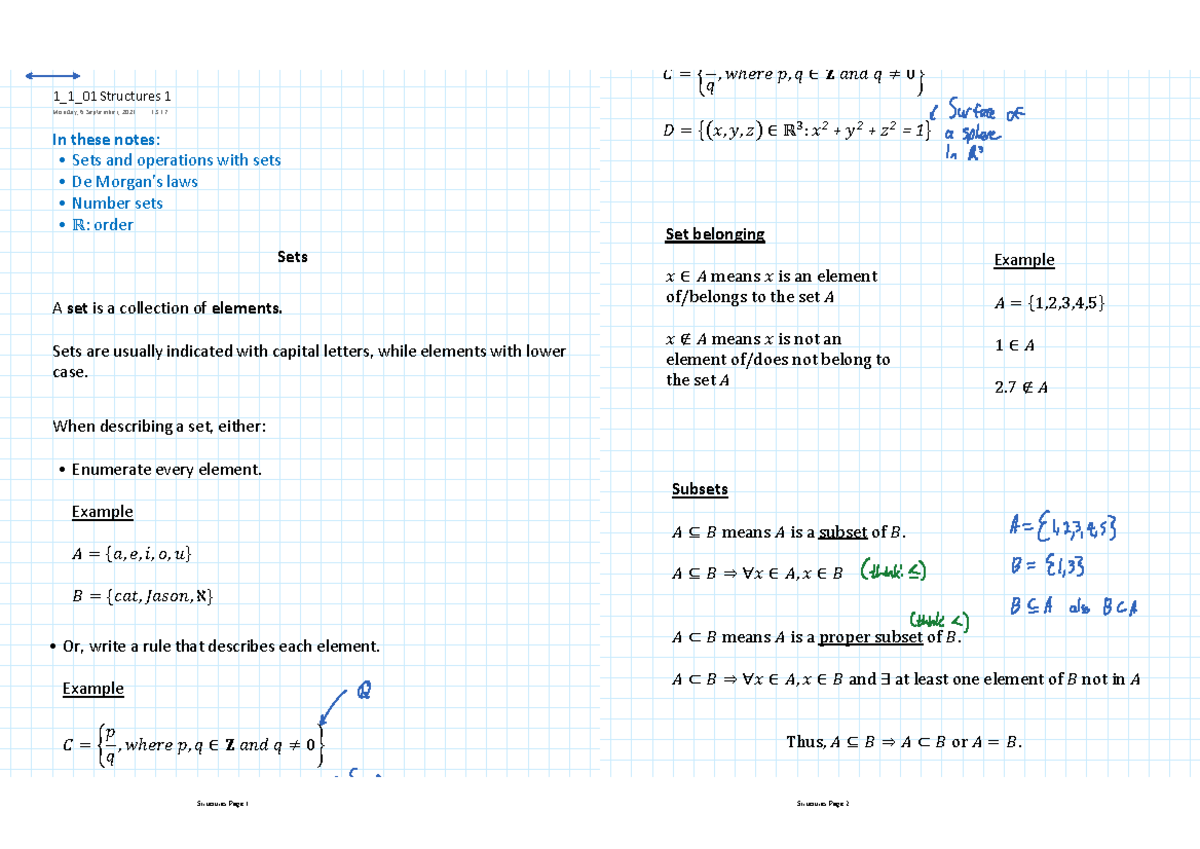 1_1_01 Structures 1
Monday, 6 September, 2021 13:17
In these notes:
• Sets and operations with sets
• De Morgan's laws
• Number sets
• ℝ: order
Sets
A set is a collection of elements.
Sets are usually indicated with capital letters, while elements with lower
case.
When describing a set, either:
• Enumerate every element.
Example
A = {a, e, i, o, u}
B = {cat, Jason, ℵ}
• Or, write a rule that describes each element.
Example
ℚ
C = {p/q, where p, q ∈ Z and q ≠ 0}
Structures Page 1
C = {p/q, where p, q ∈ Z and q ≠ 0}
D = {(x, y, z) ∈ ℝ³: x² + y² + z² = 1}
Surface of
a sphere
in ℝ³
Set belonging
x ∈ A means x is an element
of/belongs to the set A
x ∉ A means x is not an
element of/does not belong to
the set A
Example
A = {1,2,3,4,5}
1 ∈ A
2.7 ∉ A
Subsets
A ⊆ B means A is a subset of B.
A ⊆ B ⇒ ∀x ∈ A, x ∈ B (think: ≤)
(think <)
A ⊂ B means A is a proper subset of B.
A ⊂ B ⇒ ∀x ∈ A, x ∈ B and ∃ at least one element of B not in A
Thus, A ⊆ B ⇒ A ⊂ B or A = B.
A = {1,2,3,4,5}
B = {1,3}
B ⊆ A also B ⊂ A
Structures Page 2